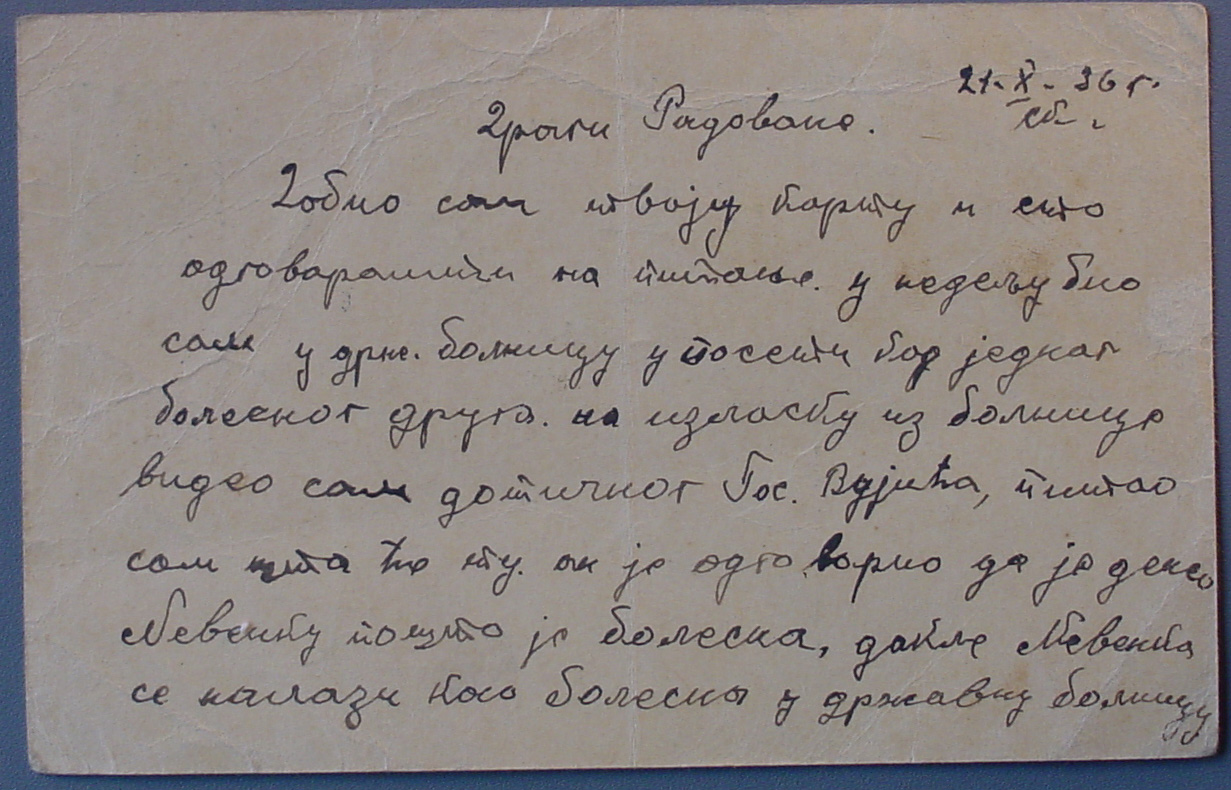 21-X-36 г.
сб.
Драги Радоване.
Добио сам твоју карту и ето
одговарам ти на питање. у недељу био
сам у држ. болницу у посети код једног
болесног друга. на изласку из болнице
видео сам дотичног Гос. Вујића, питао
сам шта ће ту. он је одговорио да је донео
Невенку пошто је болесна, дакле Невенка
се налази као болесна у државну болницу